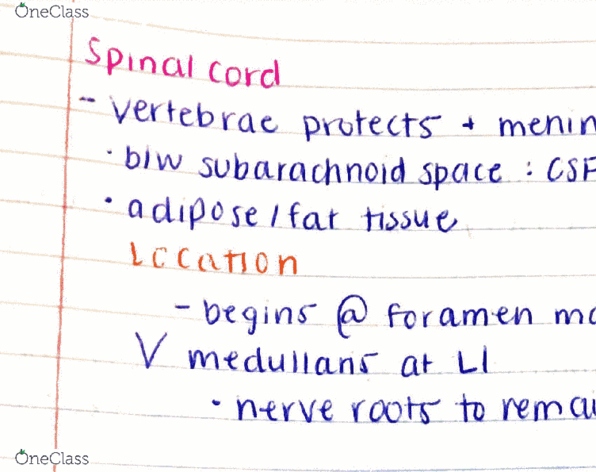 OneClass
Spinal cord
- vertebrae protects + menin
· b/w subarachnoid space : CSF
· adipose/fat tissue
Location
- begins @ foramen ma
V medullans at L1
· nerve roots to remai
OneClass